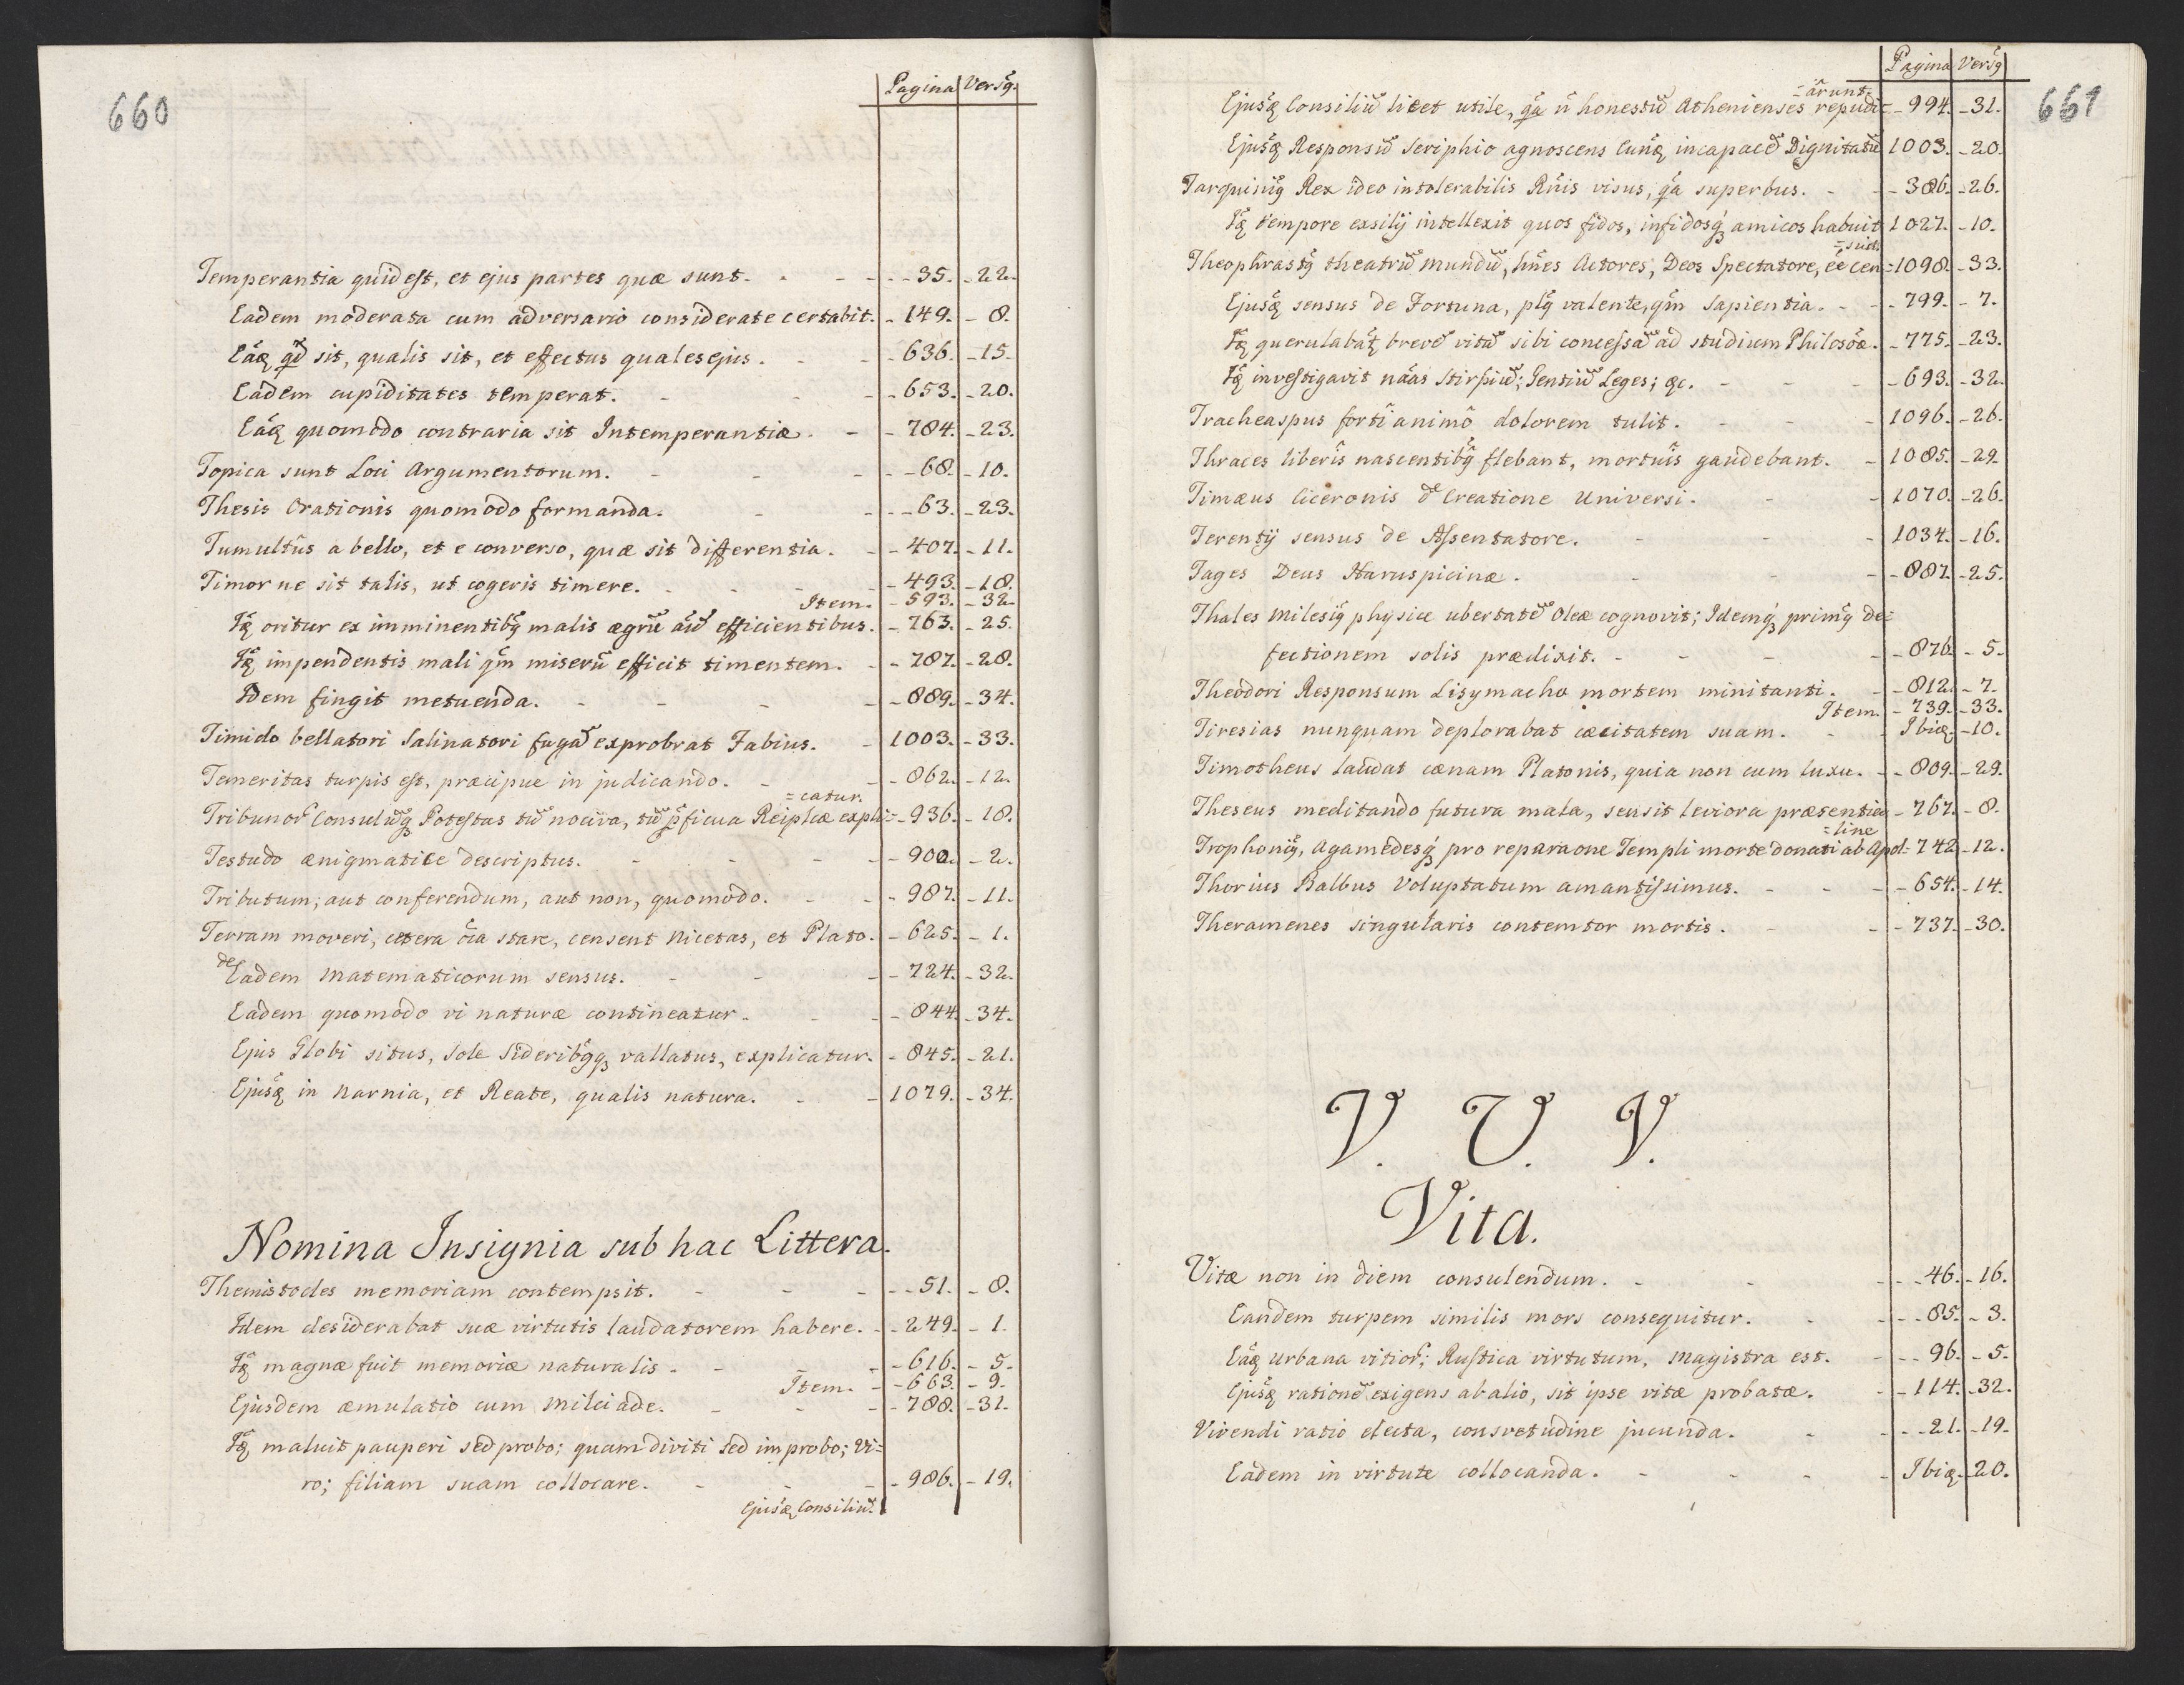 660
Pagina Versq̃
Temperantia quid est, et ejus partes quæ sunt. - - - 35. - 22.
Eadem moderata cum adversario considerate certabit. - 149. - 8.
Eáq qd sit, qualis sit, et effectus quales ejus. - - 636. - 15.
Eadem cupiditates temperat. - - - 653. - 20.
Eáq quomodo contraria sit Intemperantiæ. - - 784. - 23.
Topica sunt Loci Argumentorum. - - - 68. - 10.
Thesis Orationis quomodo formanda. - - - 63. - 23.
Tumultûs a bello, et e converso, quæ sit differentia. - - 407. - 11.
Timor ne sit talis, ut cogeris timere. - - - 493. - 18.
Item. - 593. - 32.
Iq̃ oritur ex imminentibq̃ malis ægrũ aĩũ efficientibus. - 763. - 25.
Iq̃ impendentis mali qm̃ miserũ efficit timentem. - - 787. - 28.
Idem fingit metuenda. - - - 889. - 34.
Timido bellatori Salinatori fugã exprobrat Fabius. - 1003. - 33.
Temeritas turpis est, præcipue in judicando. - - 862. - 12.
=catur.
Tribunor̃ Consulũq Potestas tũ nociva, tũ p̃ficua Reiplicæ expli= - 936. - 18.
Testudo ænigmatice descriptus. - - - 900. - 2.
Tributum; aut conferendum, aut non, quomodo. - - 987. - 11.
Terram moveri, cetera õia stare, censent Nicetas, et Plato. - 625. - 1.
de Eadem Matematicorum sensus. - - - 724. - 32.
Eadem quomodo vi naturæ contineatur. - - 844. - 34.
Ejus Globi situs, Sole Sideribq̃q vallatus, explicatur. - 845. - 21.
Ejusq̃ in Narnia, et Reate, qualis natura. - - 1079. - 34.
Nomina Insignia sub hac Littera.
Themistocles memoriam contempsit. - - - 51. - 8.
Idem desiderabat suæ virtutis laudatorem habere. - - 249. - 1.
Iq̃ magnæ fuit memoriæ naturalis. - - - 616. - 5.
Item. - - 663. - 9.
Ejusdem æmulatio cum Milciade. - - - 788. - 31.
Iq̃ maluit pauperi sed probo; quam diviti sed improbo; vi=
ro; filiam suam collocare. - - - 986. - 19.
Ejusq̃ Consiliũ
661
Pagina Versq̃
=ârunt.
Ejusq̃ Consiliũ licet utile, qa ñ honestũ Athenienses repudi= - 994. - 31.
Ejusq̃ Responsũ Seriphio agnoscens Eunq̃ incapacẽ Dignitatũ 1003. - 20.
Tarquiniq̃ Rex ideo intolerabilis Rñis visus, qa superbus. - - 386. - 26.
Iq̃ tempore exsilij intellexit quos fidos, infidosq́ amicos habuit 1027. - 10.
=suit.
Theophrastq̃ theatrũ Mundũ, hñes Actores, Deos Spectatore, ẽe cen= 1098. - 33.
Ejusq̃ sensus de Fortuna, plq̃ valente, qm̃ Sapientia. - - 799. - 7.
Iq̃ querulabat̃ brevẽ vitã sibi concessã ad studium Philosõæ. - 775. - 23.
Iq̃ investigavit nãas Stirpiũ; Gentiũ Leges; &c. - - - 693. - 32.
Tracheaspus forti animô dolorem tulit. - - - 1096. - 26.
Thraces liberis nascentibq̃ flebant, mortuis gaudebant. - 1085. - 29.
Timæus Ciceronis de Creatione Universi. - - 1070. - 26.
Terentij sensus de Assentatore. - - - 1034. - 16.
Tages Deus Haruspicinæ. - - - 887. - 25.
Thales Milesiq̃ physice ubertatẽ Oleæ cognovit; Idemq́ primq̃ de=
fectionem solis prædixit. - - - 876. - 5.
Theodori Responsum Lisymacho mortem minitanti. - - 812. - 7.
Item. - 739. - 33.
Tiresias nunquam deplorabat cæcitatem suam. - - Ibiq. - 10.
Timotheus laudat cænam Platonis, quia non cum luxu. - - 809. - 29.
Theseus meditando futura mala, sensit leviora præsentia - 767. - 8.
=line
Trophoniq̃, Agamedesq́ pro reparaone Templi morte donati ab Apol= 742. - 12.
Thorius Balbus Voluptatum amantissimus. - - - 654. - 14.
Theramenes singularis contemtor mortis. - - - 737. - 30.
V. U. V.
Vita.
Vitæ non in diem consulendum. - - - 46. - 16.
Eandem turpem similis mors consequitur. - - - 85. - 3.
Eáq Urbana vitior̃; Rustica virtutum, Magistra est. - - 96. - 5.
Ejusq̃ rationẽ exigens ab alio, sit ipse vitæ probatæ. - - 114. - 32.
Vivendi ratio electa, consvetudine jucunda. - - - 21. - 19.
Eadem in virtute collocanda. - - - Ibiq. - 20.